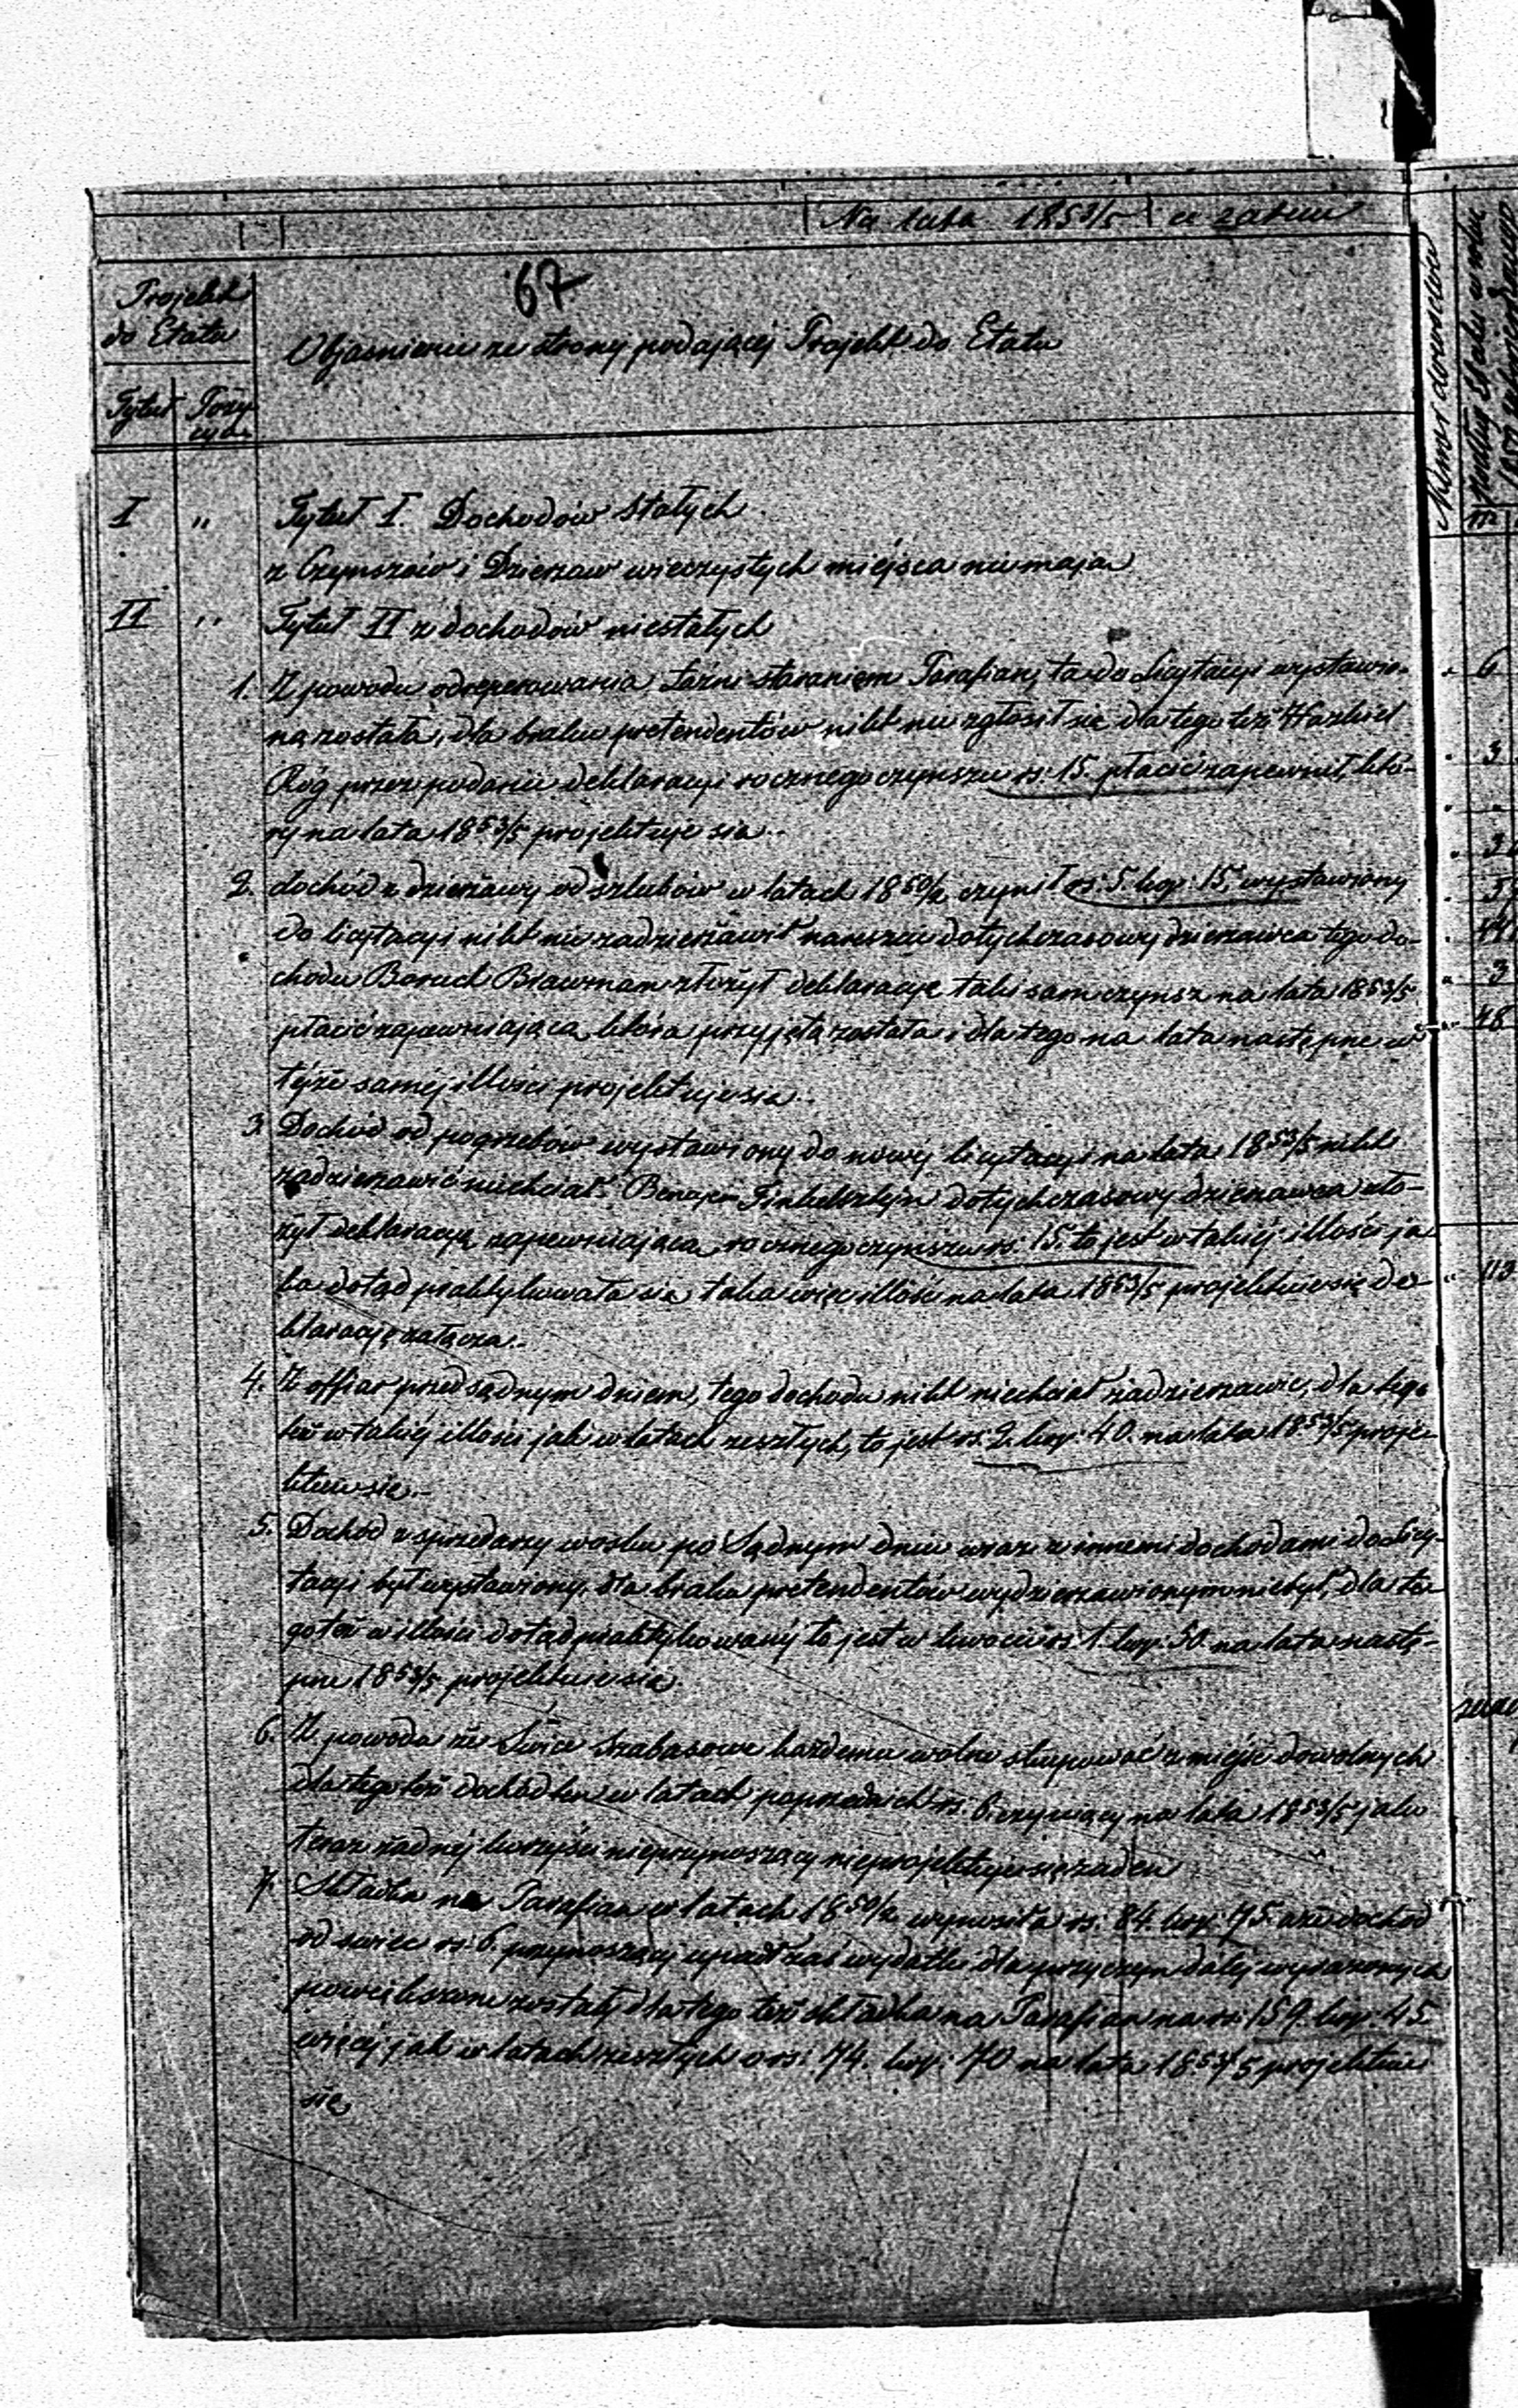 Na lata 1853/5 a zatem
67
Projekt
do Etatu
Objasnienie ze strony podającéj Projekt do Etatu
Tytuł Pozy-
cya
I " Tytuł I. Dochodów stałych
z Czynszów i Dzierzaw wieczystych miéjsca niemają
II " Tytuł II z dochodów niestałych
1. Z powodu odreperowania Łaźni staraniem Parafian, ta do Licytacyi wystawio-
na została, dla braku pretendentów nikt nie zgłosił się dla tego też
Róg przez podanie deklaracyi rocznego czynszu rs: 15. płacić zapewnił, któ-
ry na lata 1853/5 projektuje się..
2. dochód z dzierżawy od szlubów w latach 1850/2 czynił rs: 5. kop: 15, wystawiony
do licytacyi nikt nie zadzierżawił nareszcie dotychczasowy dzierzawca tego do-
chodu Boruch Brawman złożył deklaracyę taki sam czynsz na lata 1853/5
płacić zapewniającą która przyjętą została i dla tego na lata następne w
téjże saméj illości projektuje się..
3. Dochód od pogrzebów wystawiony do nowéj licytacyi na lata 1853/5 nikt
zadzierzawić niechciał. Finkelsztejn dotychczasowy dzierzawca zło-
żył deklaracyę zapewniającą rocznego czynszu rs: 15. to jest w takiéj illości ja-
ka dotąd praktykowała się taka więc illość na lata 1853/5 projektuie się de-
klaracyę załącza..
4. Z offiar przed sądnym dniem, tego dochodu nikt niechciał zadzierzawic, dla tego
też w takiéj illości jak w latach zeszłych, to jest rs: 2. kop: 40. na lata 1853/5 proje-
ktuie się..
5. Dochód z sprzedarzy wosku po Sądnym dniu wraz z innemi dochodami do licy-
tacyi był wystawiony, dla braku pretendentów wydzierzawionym niebył, dla te-
go też w illości dotąd praktykowanéj to jest w kwocie rs: 1 kop. 50. na lata nastę-
pne 1853/5 projektuie się
6. Z powodu że Swice szabasowe każdemu wolno skupować z miéjsc dowolnych
dla tego też dochód ten w latach poprzednich rs: 6. czyniący na lata 1853/5 jako
teraz żadnéj korzyści nieprzynoszący nieprojektuje się żaden
7. Składka na Parafian w latach 1850/2 wynosiła rs: 84. kop: 75. a że dochód
od swiec rs: 6. przynoszący upadł zaś wydatki dla przyczyn daléj wyrazonych
powiększone zostały dla tego też składka na Parafian na rs: 159. kop. 45
więcéj jak w latach zeszłych o rs: 74. kop: 70 na lata 1853/5 projektuie
się